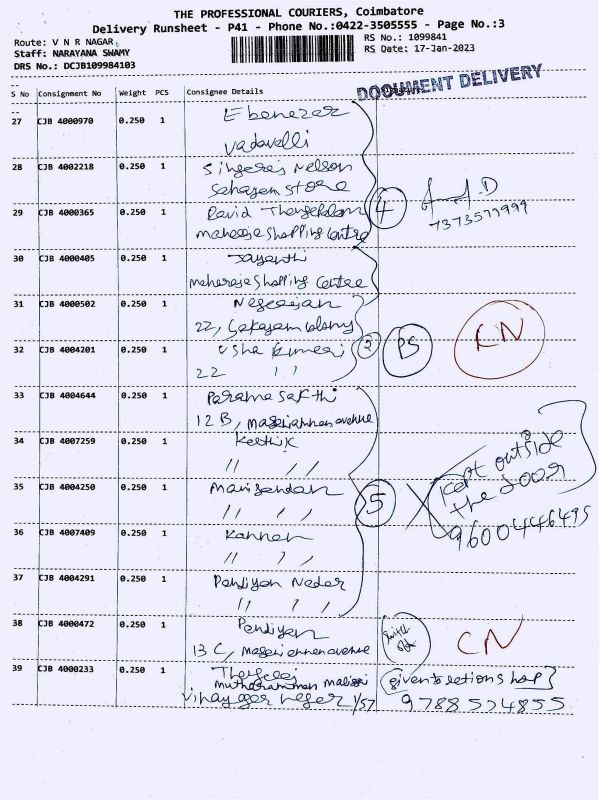 THE PROFESSIONAL COURIERS, Coimbatore
Delivery Runsheet - P41 - Phone No.:0422-3505555 - Page No.:3
Route: V N R NAGAR
Staff: NARAYANA SWAMY
DRS No.: DCJB109984103
RS No.: 1099841
RS Date: 17-Jan-2023
DOCUMENT DELIVERY
S No Consignment No Weight PCS Consignee Details
27 CJB 4000970 0.250 1 Ebenezer
Vadavalli
28 CJB 4002218 0.250 1 Singeraj Nelson
Sahayam store
29 CJB 4000365 0.250 1 David
Shopping Centre
4
D
7373577999
30 CJB 4000405 0.250 1 Jayanthi
Shopping Centre
31 CJB 4000502 0.250 1
22,
32 CJB 4004201 0.250 1 Usha Kumari
22 ,,
2
PS
CN
33 CJB 4004644 0.250 1 Parama Sakthi
12 B, avenue
34 CJB 4007259 0.250 1 Karthik
// //
35 CJB 4004250 0.250 1
// //
5
Kept outside
the door
9600446495
36 CJB 4007409 0.250 1 Kannan
// //
37 CJB 4004291 0.250 1 Pandiyan Nadar
// //
38 CJB 4000472 0.250 1 Pandiyan
13 C, avenue
CN
39 CJB 4000233 0.250 1
mutharamman
1/57
given
9788574855